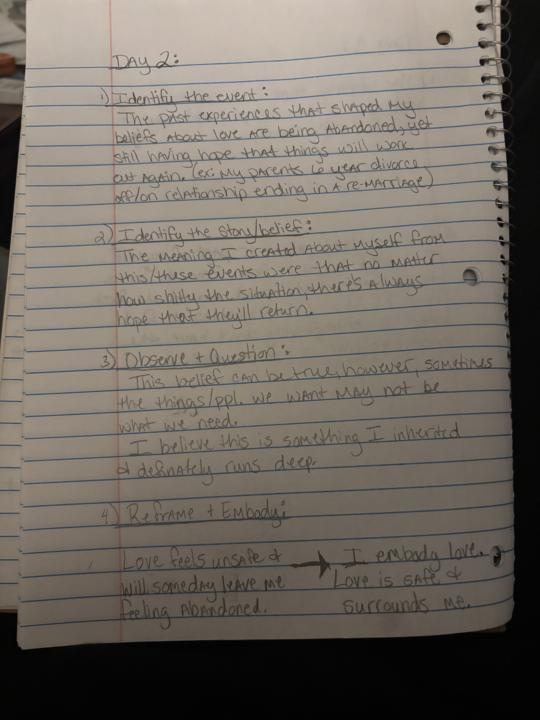 DAY 2:
1) Identify the event:
The past experiences that shaped my
beliefs about love are being abandoned, yet
still having hope that things will work
out again. (ex: my parents 6 year divorce
off/on relationship ending in a re-marriage)
2) Identify the story/belief:
The meaning I created about myself from
this/these events were that no matter
how shitty the situation, there's always
hope that they'll return.
3) Observe + Question:
This belief can be true, however, sometimes
the things/ppl. we want may not be
what we need.
I believe this is something I inherited
& definately runs deep.
4) Reframe + Embody:
Love feels unsafe & → I embody love.
will someday leave me Love is safe &
feeling abandoned. surrounds me.